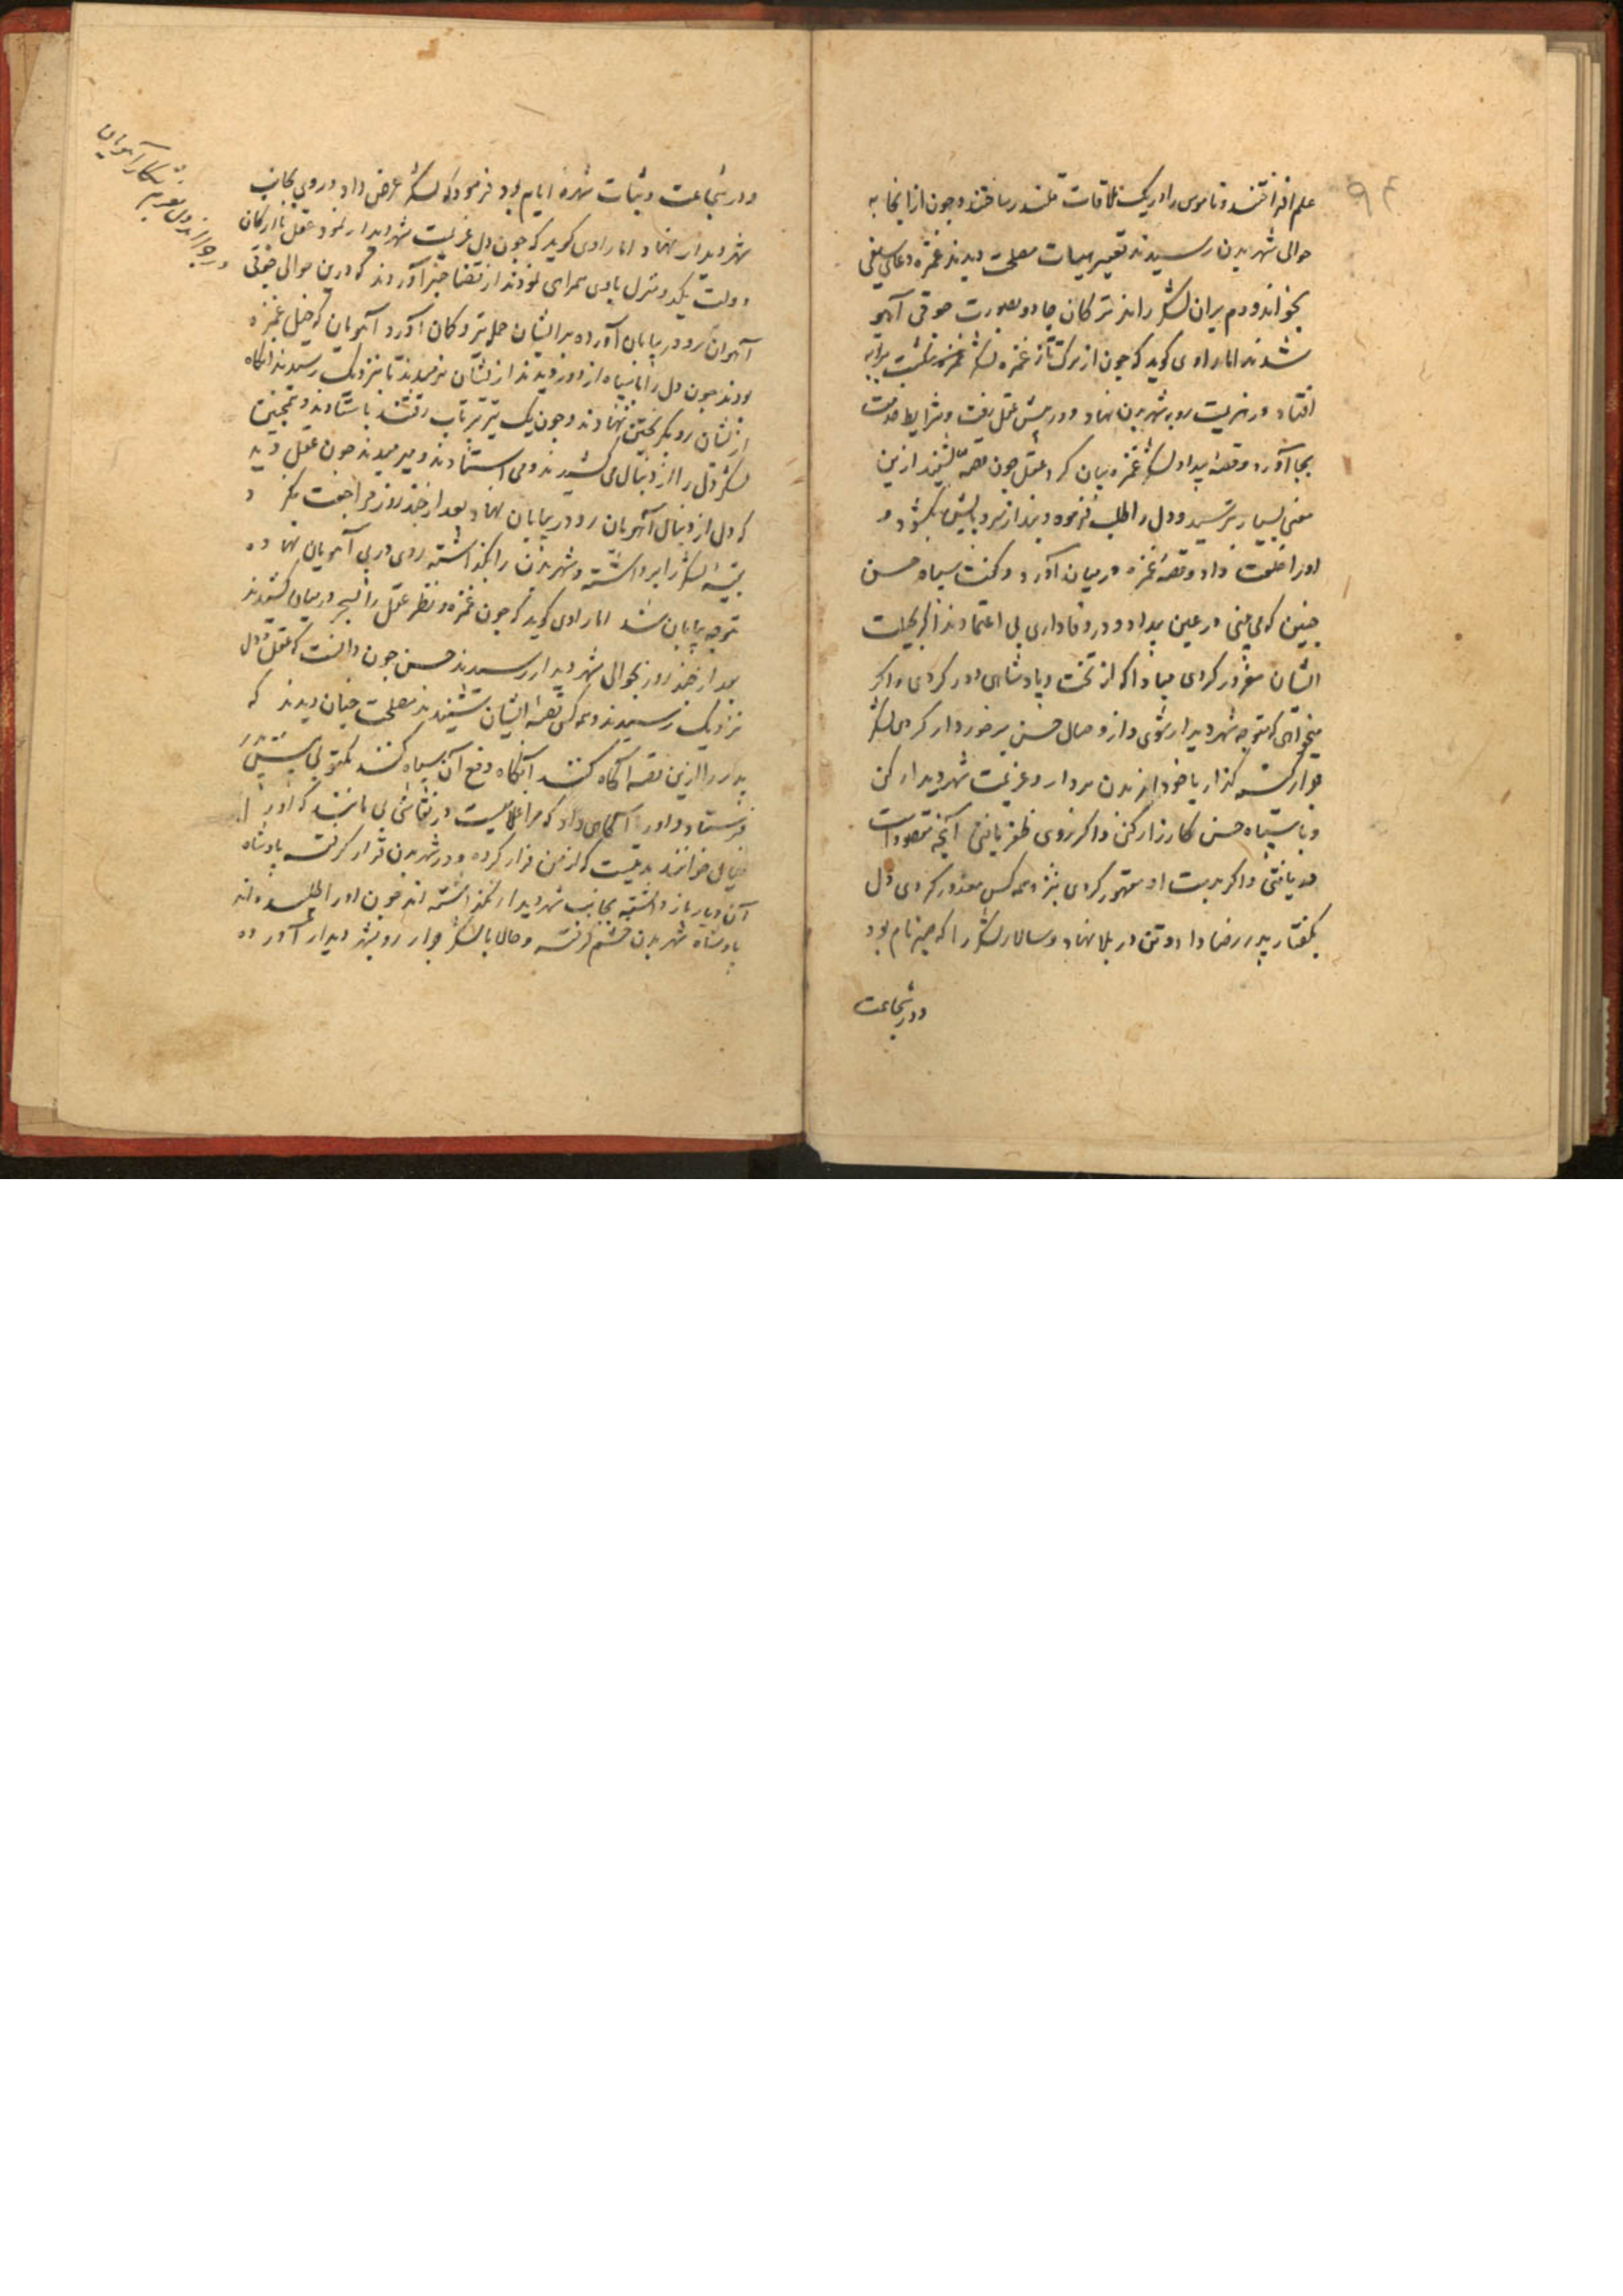 علم افراختند و ناموس را در یک ملاقات قلندر ساختند و چون از انجا به
حوالی شهر بدن رسیدند تغییر هیبات مصلحت دیدند غمزه دعای سیفی
بخواند و دم بران لشکر راند ترکان جادو بصورت جوقی آهو
شدند اما راوی کوید که چون از ترکتاز غمزه لشکر
افتاد و هزیمت رو به شهر بدن نهاد و در پیش عقل رفت و شرایط خدمت
بجا آورد و قصهٔ بیداد لشکر غمزه بیان کرد عقل چون قصه بشنید ازین
معنی بسیار بترسید و دل را طلب فرموده و بند از سر و پایش بکشود و
اورا خلعت داد و قصهٔ غمزه درمیان آورد و کفت سپاه حسن
چنین که می بینی در عین بیداد و در وفاداری بی اعتمادند اگر بحیات
ایشان مغرور کردی مبادا که از تخت و پادشاهی دور کردی و اکر
میخواهی که متوجه شهر دیدار شوی و از وصال حسن برخوردار کردی لشکر
جرار کینه کذار با خود از بدن بردار و عزیمت شهر دیدار کن
و با سپاه حسن کارزار کن و اکر بروی ظفر یافتی آنچه مقصود است
دریافتی و اکر بدست او مقهور کردی نیز همه کس معذور کردی دل
بکفتار پدر رضا داد و تن در بلا نهاد و سالار لشکر را که صبر نام بود
و در شجاعت
و در شجاعت و ثبات شهرهٔ ایام بود فرمود که لشکر عرض داد و روی بجانب
شهر دیدار نهاد اما راوی کوید که چون دل عزیمت شهر دیدار نمود عقل با ارکان
دولت یکدو منزل با وی همراهی نمودند از قضا خبر آوردند که درین حوالی جوقی
آهوان رو در بیابان آورده بر ایشان حمله تیر و کمان آورد آهویان که خیل غمزه
بودند چون دل را با سپاه از دور دیدند از ایشان نرمیدند تا نزدیک رسیدند آنکاه
از ایشان رو بکریختن نهادند و چون یک تیر پرتاب رفتند باستادند و همچنین
لشکر دل را از دنبال می کشیدند و می استادند و میرمیدند چون عقل دید
که دل از دنبال آهویان رو در بیابان نهاد بعد از چند روز مراجعت نکرد و
بقیهٔ لشکر را برداشته و شهر بدن را بکذاشته روی در پی آهویان نهاده
متوجه بیابان شد اما راوی کوید که چون غمزه و نظر عقل را نیز در بیابان کشیدند
بعد از چند روز بحوالی شهر دیدار رسیدند حسن چون دانست که عقل و دل
نزدیک رسیدند و همه کس قصهٔ ایشان شنیدند مصلحت چنان دیدند که
پدر را ازین قصه آگاه کنند آنکاه دفع آن سپاه کنند مکتوبی پیش پدر
فرستاد و اورا آکاهی داد که مرا غلامیست در نقاشی بی مانند که اورا
خیال خوانند مدتیست که از من فرار کرده و در شهر بدن قرار کرفته پادشاه
آن دیار باز داشته بجانب شهر دیدار نکذاشته اند چون اورا طلبیده اند
پادشاه شهر بدن خشم کرفته و حالا با لشکر جرار رو بشهر دیدار آورده